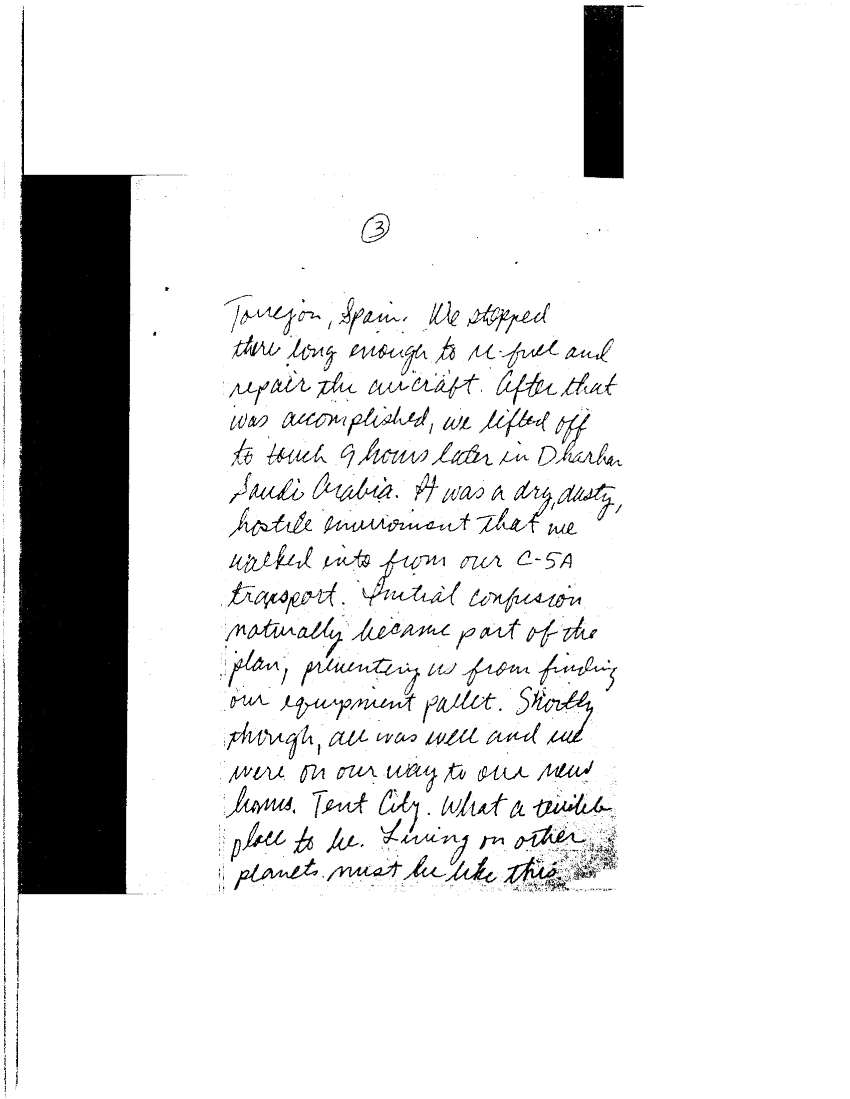 3
Torrejon, Spain. We stopped
there long enough to re-fuel and
repair the aircraft. After that
was accomplished, we lifted off
to touch 9 hours later in Dharhan
Saudi Arabia. It was a dry, dusty,
hostile enviroment that we
walked into from our C-5A
transport. Initial confusion
naturally became part of the
plan, preventing us from finding
our equipment pallet. Shortly
though, all was well and we
were on our way to our new
homes. Tent City. What a terrible
place to be. Living on other
planets must be like this.